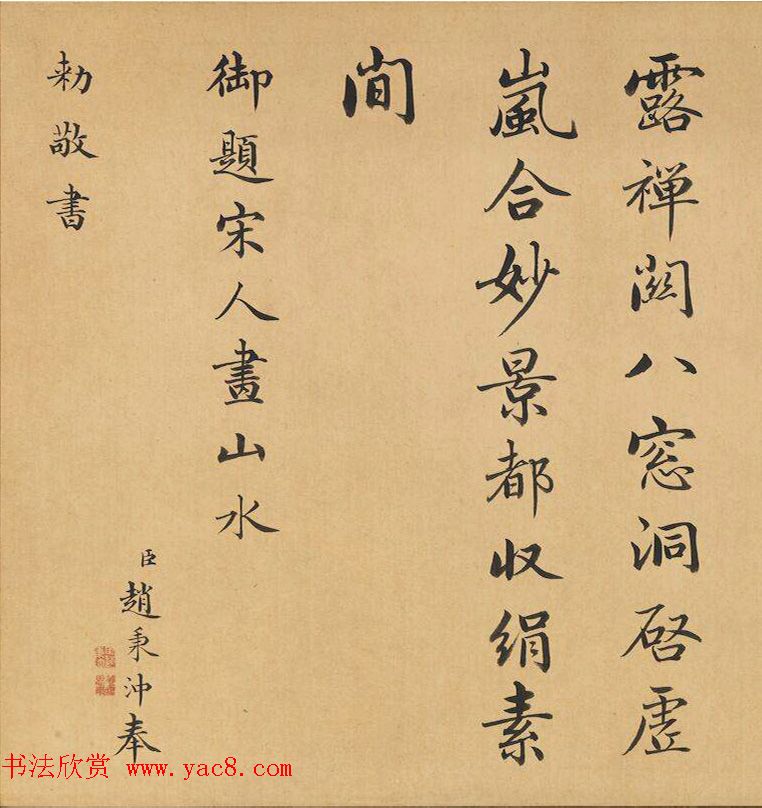 露禪闗八窓洞啓虚
嵐合妙景都収絹素
間
御題宋人畫山水
臣趙秉沖奉
勅敬書
书法欣赏 www.yac8.com